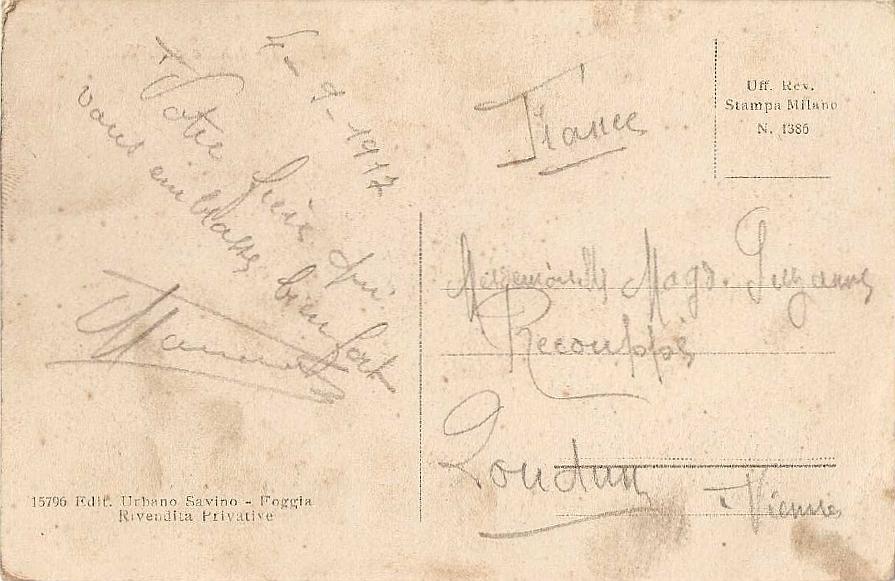 7-9-1917
Votre frère qui
vous embrasse bien fort
France
Uff. Rev.
Stampa Milano
N. 1386
Mesemoiselle Magd. Suzanne
Recouppé
Loudun
Vienne
15796 Edit. Urbano Savino - Foggia
Rivendita Privative